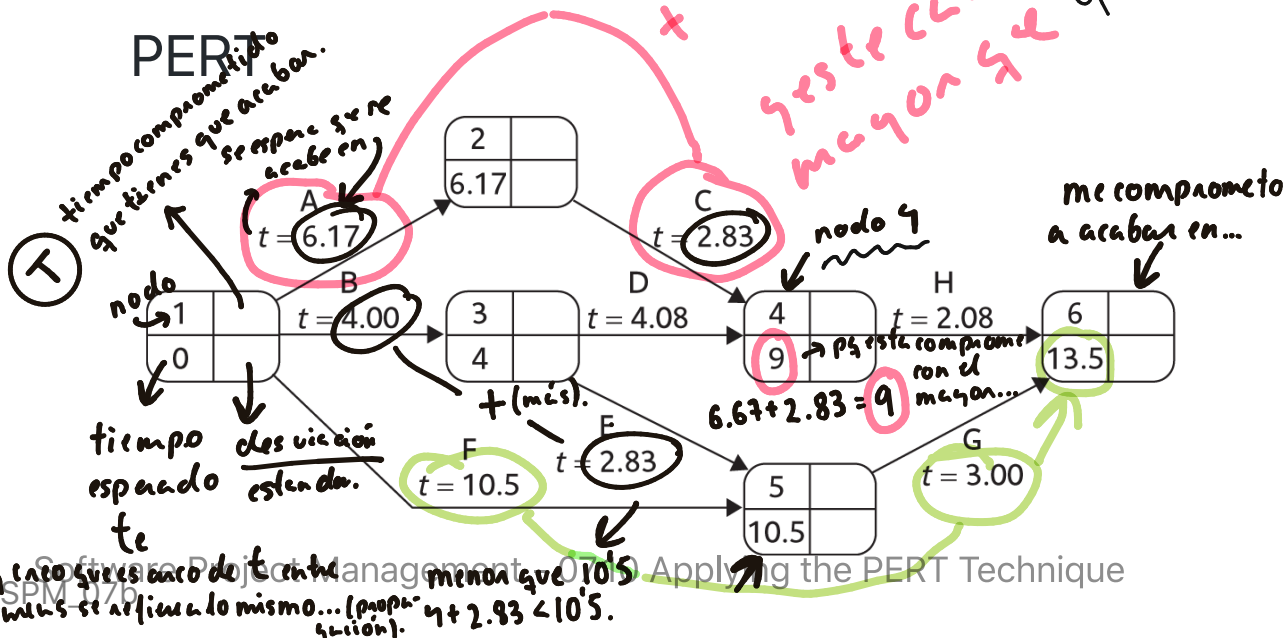 PERT
tiempo comprometido
que tienes que acabar.
T
se espera que se
acabe en
x
y este
mayor que
me comprometo
a acabar en...
nodo 4
nodo
A
t = 6.17
B
t = 4.00
C
t = 2.83
D
t = 4.08
E
t = 2.83
F
t = 10.5
G
t = 3.00
H
t = 2.08
1
0
2
6.17
3
4
4
9
5
10.5
6
13.5
con el
mayor...
6.67+2.83=9
+ (más).
tiempo
esperado
te
desviación
estandar.
menor que 10'5
4+2.83<10'5.
creo que es arco de t entre
se refiere a lo mismo... (propa-
gación).
Software Project Management - 07 19 Applying the PERT Technique
SPM_07b